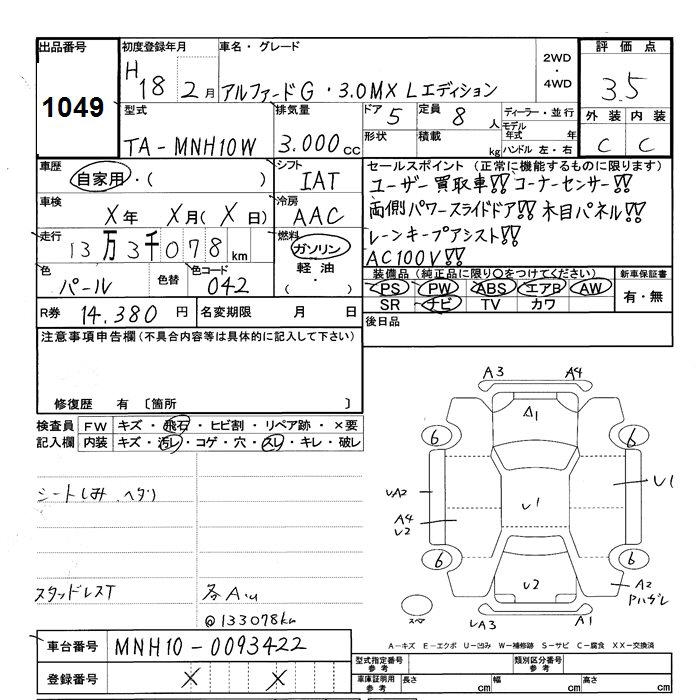 出品番号
1049
初度登録年月
H18 2月
車名・グレード
アルファードG・3.0MX Lエディション
2WD
・
4WD
評価点
3.5
外装 内装
C C
型式
TA-MNH10W
排気量
3.000cc
ドア 5
定員 8人
ディーラー・並行
形状
積載 kg
モデル年式 年
ハンドル 左・右
車歴
自家用・( )
シフト
IAT
車検
X年 X月(X日)
冷房
AAC
走行
13万3千078km
燃料
ガソリン
軽油
( ・ )
色
パール
色替
色コード
042
R券 14.380円
名変期限 月 日
セールスポイント(正常に機能するものに限ります)
ユーザー買取車!! コーナーセンサー!!
両側パワースライドドア!! 木目パネル!!
レーンキープアシスト!!
AC100V!!
装備品(純正品に限り○をつけてください)
PS PW ABS エアB AW
SR ナビ TV カワ
新車保証書
有・無
後日品
注意事項申告欄(不具合内容等は具体的に記入して下さい)
修復歴 有〔箇所 〕
検査員記入欄
FW キズ・飛石・ヒビ割・リペア跡・×要
内装 キズ・汚レ・コゲ・穴・スレ・キレ・破レ
シートしみ ヘタリ
スタッドレスT
各A.u
@133078km
A3 A4
△1
6 6
UA2
U1
U1
A4
U2
6 6
U2
A2
Pハガレ
スペア
UA3 A1
A-キズ E-エクボ U-凹み W-補修跡 S-サビ C-腐食 XX-交換済
車台番号 MNH10-0093422
登録番号 X X
型式指定番号 参考
類別区分番号 参考
車庫証明用 参考
長さ cm 幅 cm 高さ cm